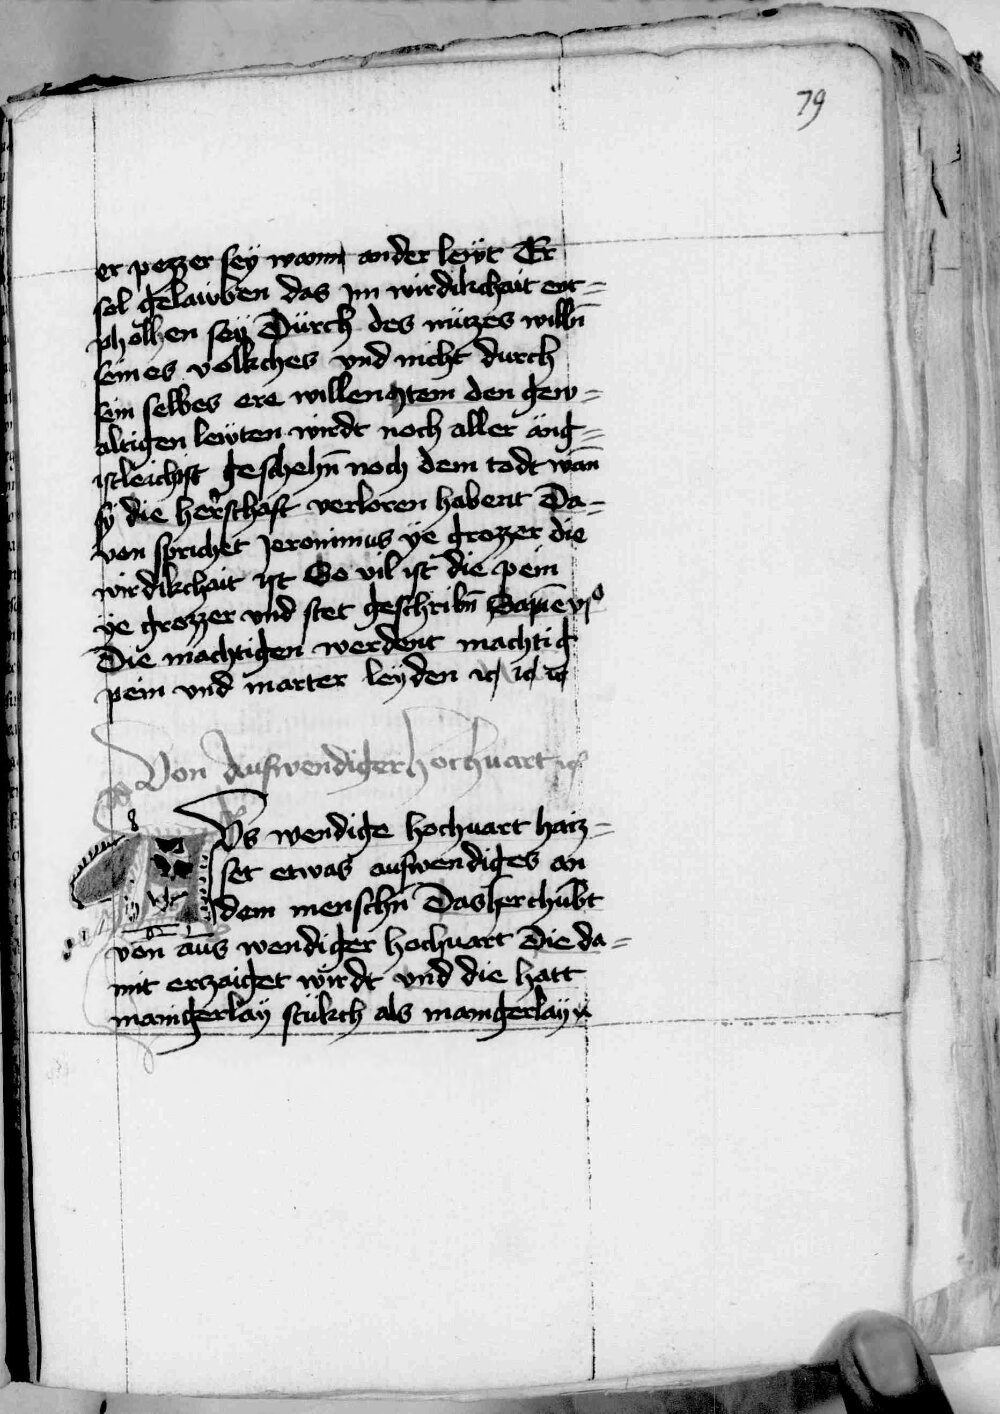 79
er pezzer sey wann ander lewt Er
sol gelawben das Jm wirdikchait ent=
pholhen sey Dürch des nützes willn̄
seines volkches vnd nicht durch
sein selbes ere willen Jtem den gew=
altigen lewten wirdt noch aller äng=
istleichist geschehn̄ noch dem todt wan̄
sy die herschaft verloren habent Da=
von sprichet Jeronimus ye grozzer die
wirdikchait ist So vil ist die pein
ye grozzer vnd stet geschribn̄ Sapiē vjº
Die mächtigen werdent machtig
pein vnd marter leyden ꝛc ꝛc ꝛc
Von Auswendiger hochuart ꝛc
Vs wendige hochuart haiz=
set etwas auswendiges an
dem menschn̄ Das herchumbt
von aus wendiger hochuart Die da=
mit erczaiget wirdt vnd die hatt
manigerlay stükch als manigerlay